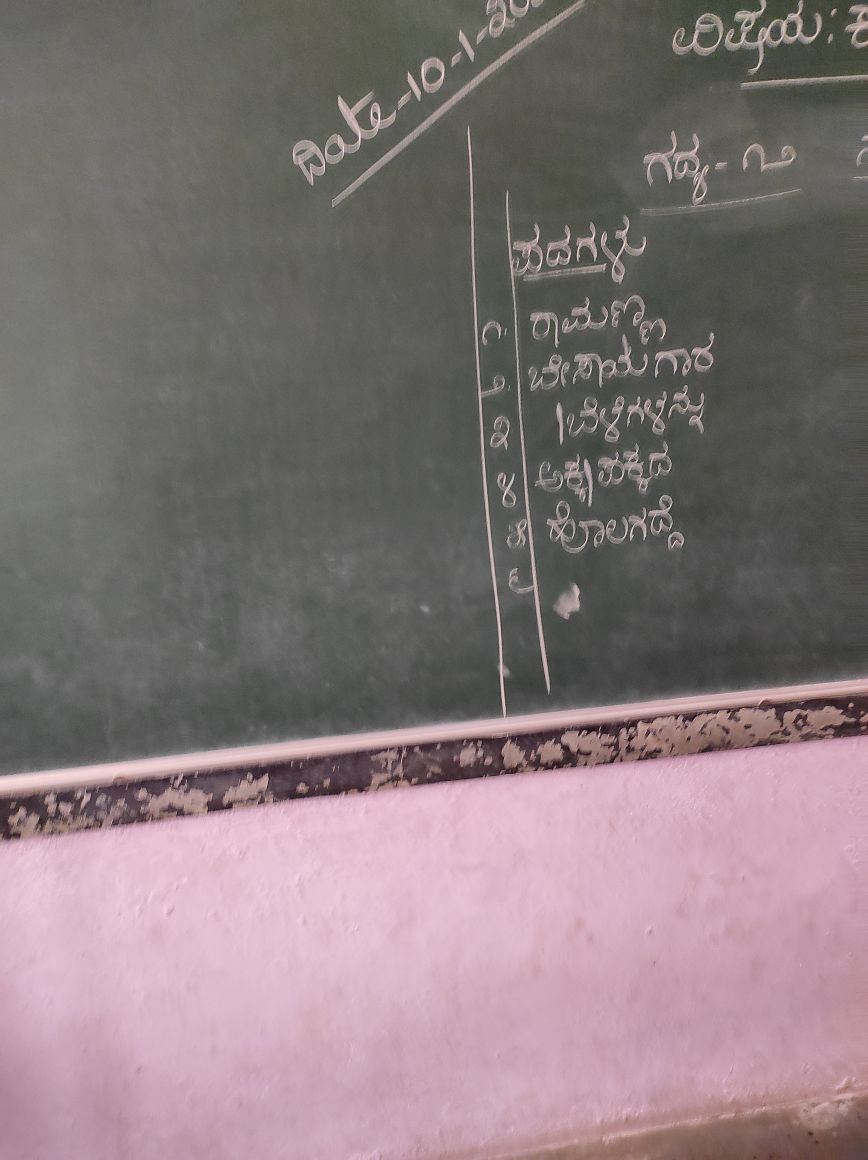 Date-10-1-20
ವಿಷಯ:
ಗದ್ಯ - ೨
ಪದಗಳು
೧. ರಾಮಣ್ಣ
೨. ಬೇಸಾಯಗಾರ
೩ |ಬೆಳೆಗಳನ್ನು
೪ ಅಕ್ಕ|ಪಕ್ಕದ
೫ ಹೊಲಗದ್ದೆ
೬